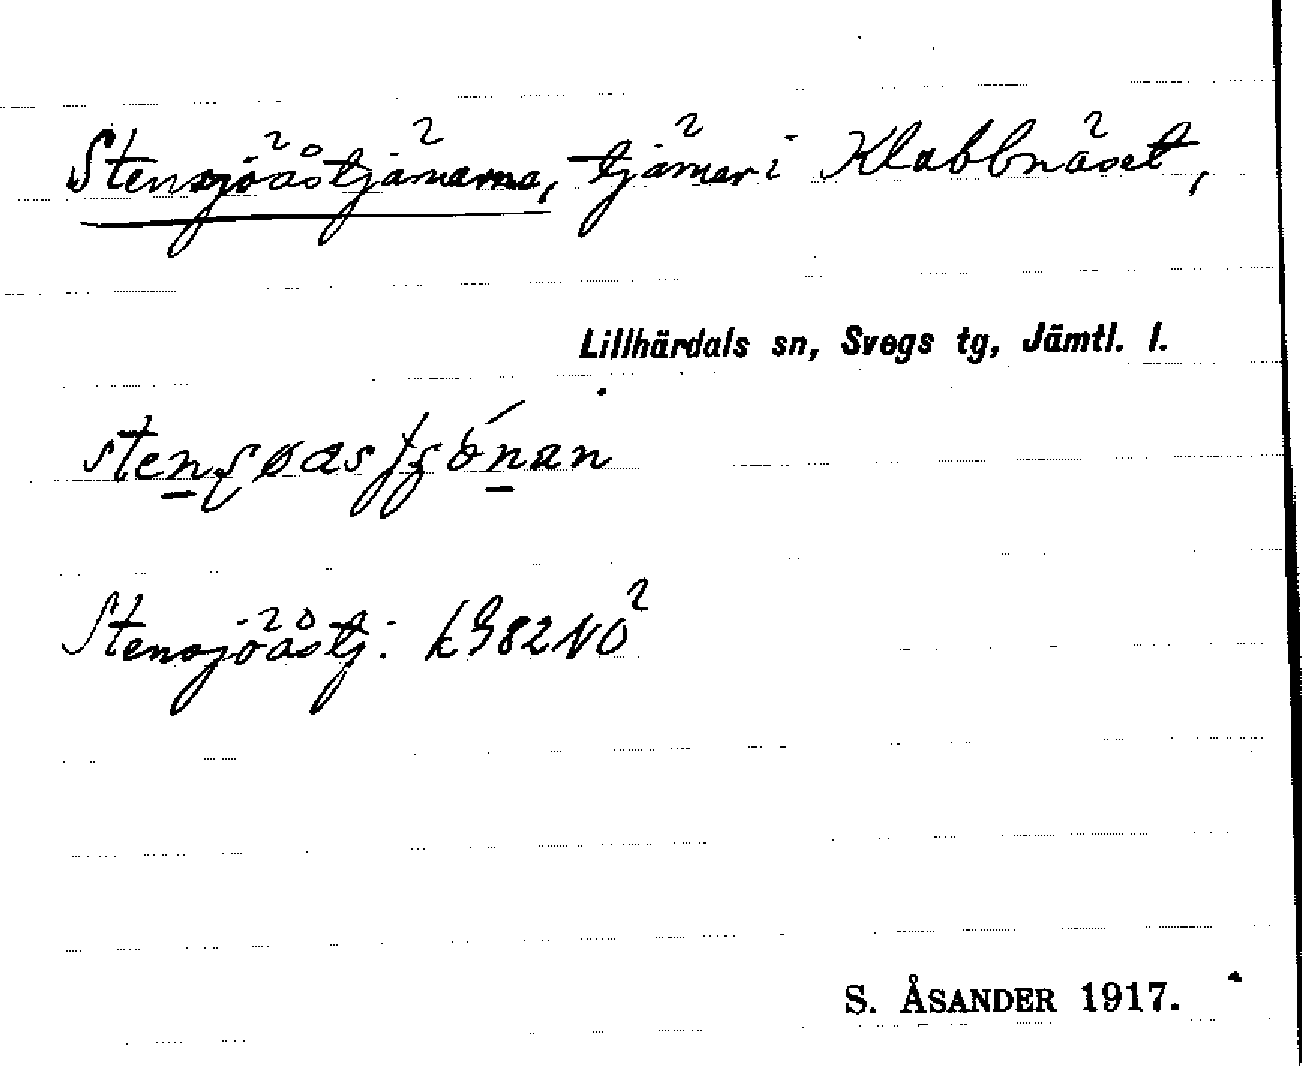 Stensjöåstjärnarna, tjärnar i Klabbnäset,
Lillhärdals sn, Svegs tg, Jämtl. l.
Stensjöåstj: k982NO²
S. ÅSANDER 1917.